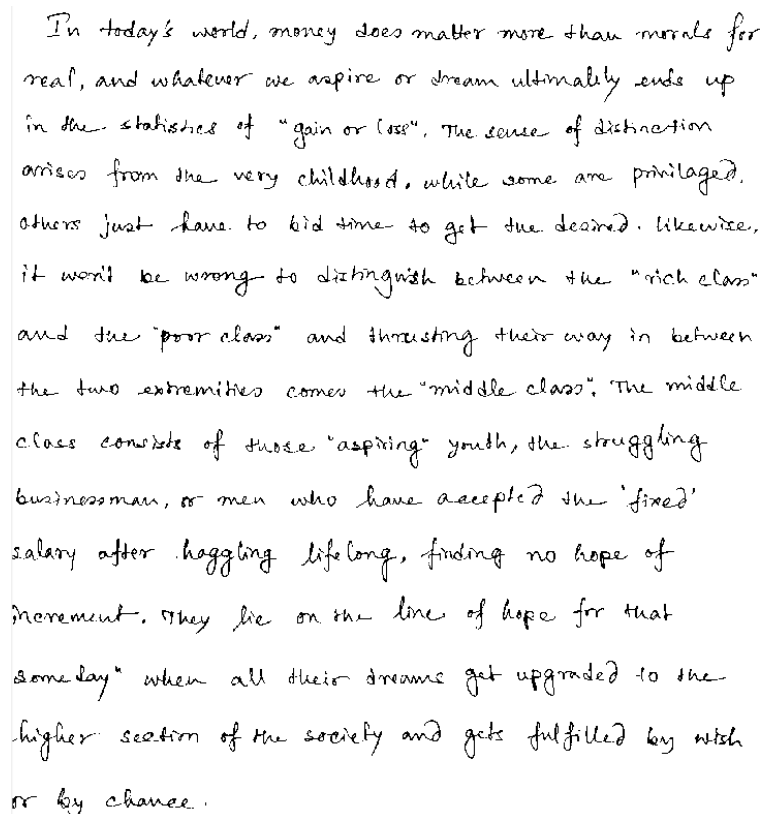 In today's world, money does matter more than morals for
real, and whatever we aspire or dream ultimately ends up
in the statistics of "gain or loss". The sense of distinction
arises from the very childhood, while some are privilaged,
others just have to bid time to get the desired. Likewise,
it won't be wrong to distinguish between the "rich class"
and the "poor class" and thrusting their way in between
the two extremities comes the "middle class". The middle
class consists of those "aspiring" youth, the struggling
businessman, or men who have accepted the 'fixed'
salary after haggling lifelong, finding no hope of
increment. They lie on the line of hope for that
someday" when all their dreams get upgraded to the
higher section of the society and gets fulfilled by wish
or by chance.